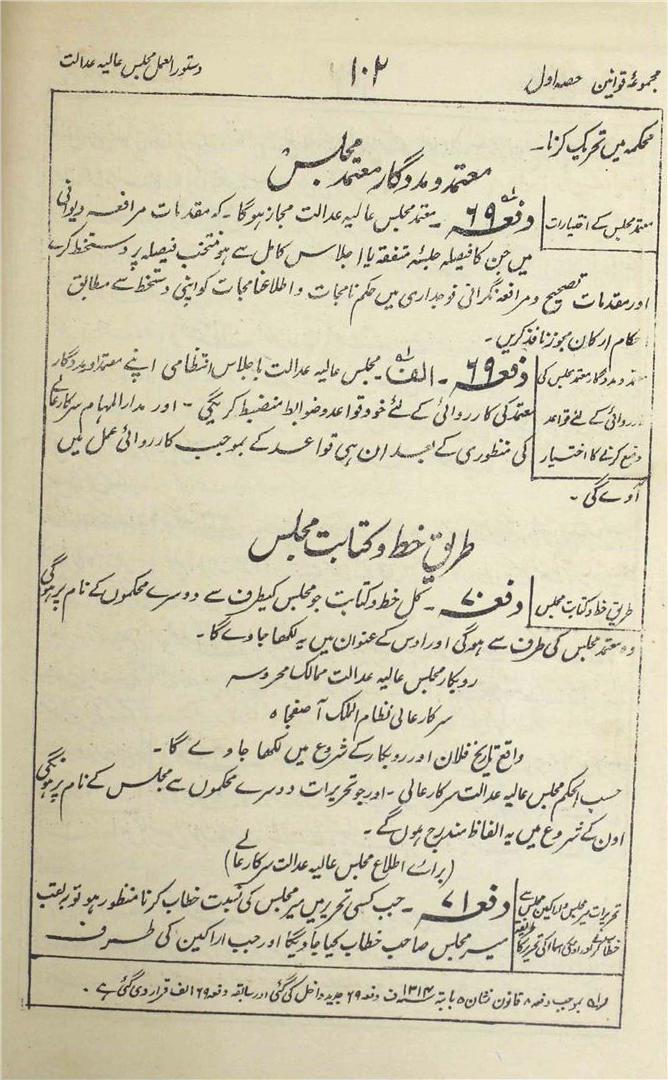 مجموعۂ قوانین حصہ اول
۱۰۲
دستور العمل مجلس عالیہ عدالت
محکمہ میں تحریک کرنا۔
معتمد و مددگار معتمد مجلس
معتمد مجلس کے اختیارات
دفعہ ۶۹۔ معتمد مجلس عالیہ عدالت مجاز ہوگا۔ کہ مقدمات مرافعہ دیوانی
میں جن کا فیصلہ جلسۂ متفقہ یا اجلاس کامل سے ہو منتخب فیصلہ پر دستخط کرے
اور مقدمات تصحیح و مرافعہ نگرانی فوجداری میں حکم نامجات و اطلاعنامجات کو اپنی دستخط سے مطابق
احکام ارکان مجوز نافذ کریں۔
معتمد و مددگار معتمد مجلس کی
کارروائی کے لئے قواعد
وضع کرنے کا اختیار
دفعہ ۶۹۔ الف۔ مجلس عالیہ عدالت باجلاس انتظامی اپنے معتمد اور مددگار
معتمد کی کارروائی کے لئے خود قواعد و ضوابط منضبط کریگی۔ اور مدار المہام سرکار عالی
کی منظوری کے بعد ان ہی قواعد کے بموجب کارروائی عمل میں
آوے گی۔
طریق خط و کتابت مجلس
طریق خط و کتابت مجلس
دفعہ ۷۰۔ کل خط و کتابت جو مجلس کیطرف سے دوسرے محکموں کے نام پر ہوگی
وہ معتمد مجلس کی طرف سے ہوگی اور اوس کے عنوان میں یہ لکھا جاوے گا۔
روبکار مجلس عالیہ عدالت ممالک محروسہ
سرکار عالی نظام الملک آصفجاہ
واقع تاریخ فلان اور روبکار کے شروع میں لکھا جاوے گا۔
حسب الحکم مجلس عالیہ عدالت سرکار عالی۔ اور جو تحریرات دوسرے محکموں سے مجلس کے نام پر ہونگی
اون کے شروع میں یہ الفاظ مندرج ہوں گے۔
(برائے اطلاع مجلس عالیہ عدالت سرکار عالی)
تحریرات میر مجلس و اراکین مجلس سے
خطاب کرنے اور اون کی
دفعہ ۷۱۔ جب کسی تحریر میں میر مجلس کی نسبت خطاب کرنا منظور ہو تو بہ لقب
میر مجلس صاحب خطاب کیا جاویگا اور جب اراکین کی طرف
بموجب دفعہ ۸ قانون نشان ۵ بابتہ ۱۳۱۴ ف دفعہ ۶۹ جدید داخل کی گئی اور سابقہ دفعہ ۶۹ الف قرار دی گئی ہے۔